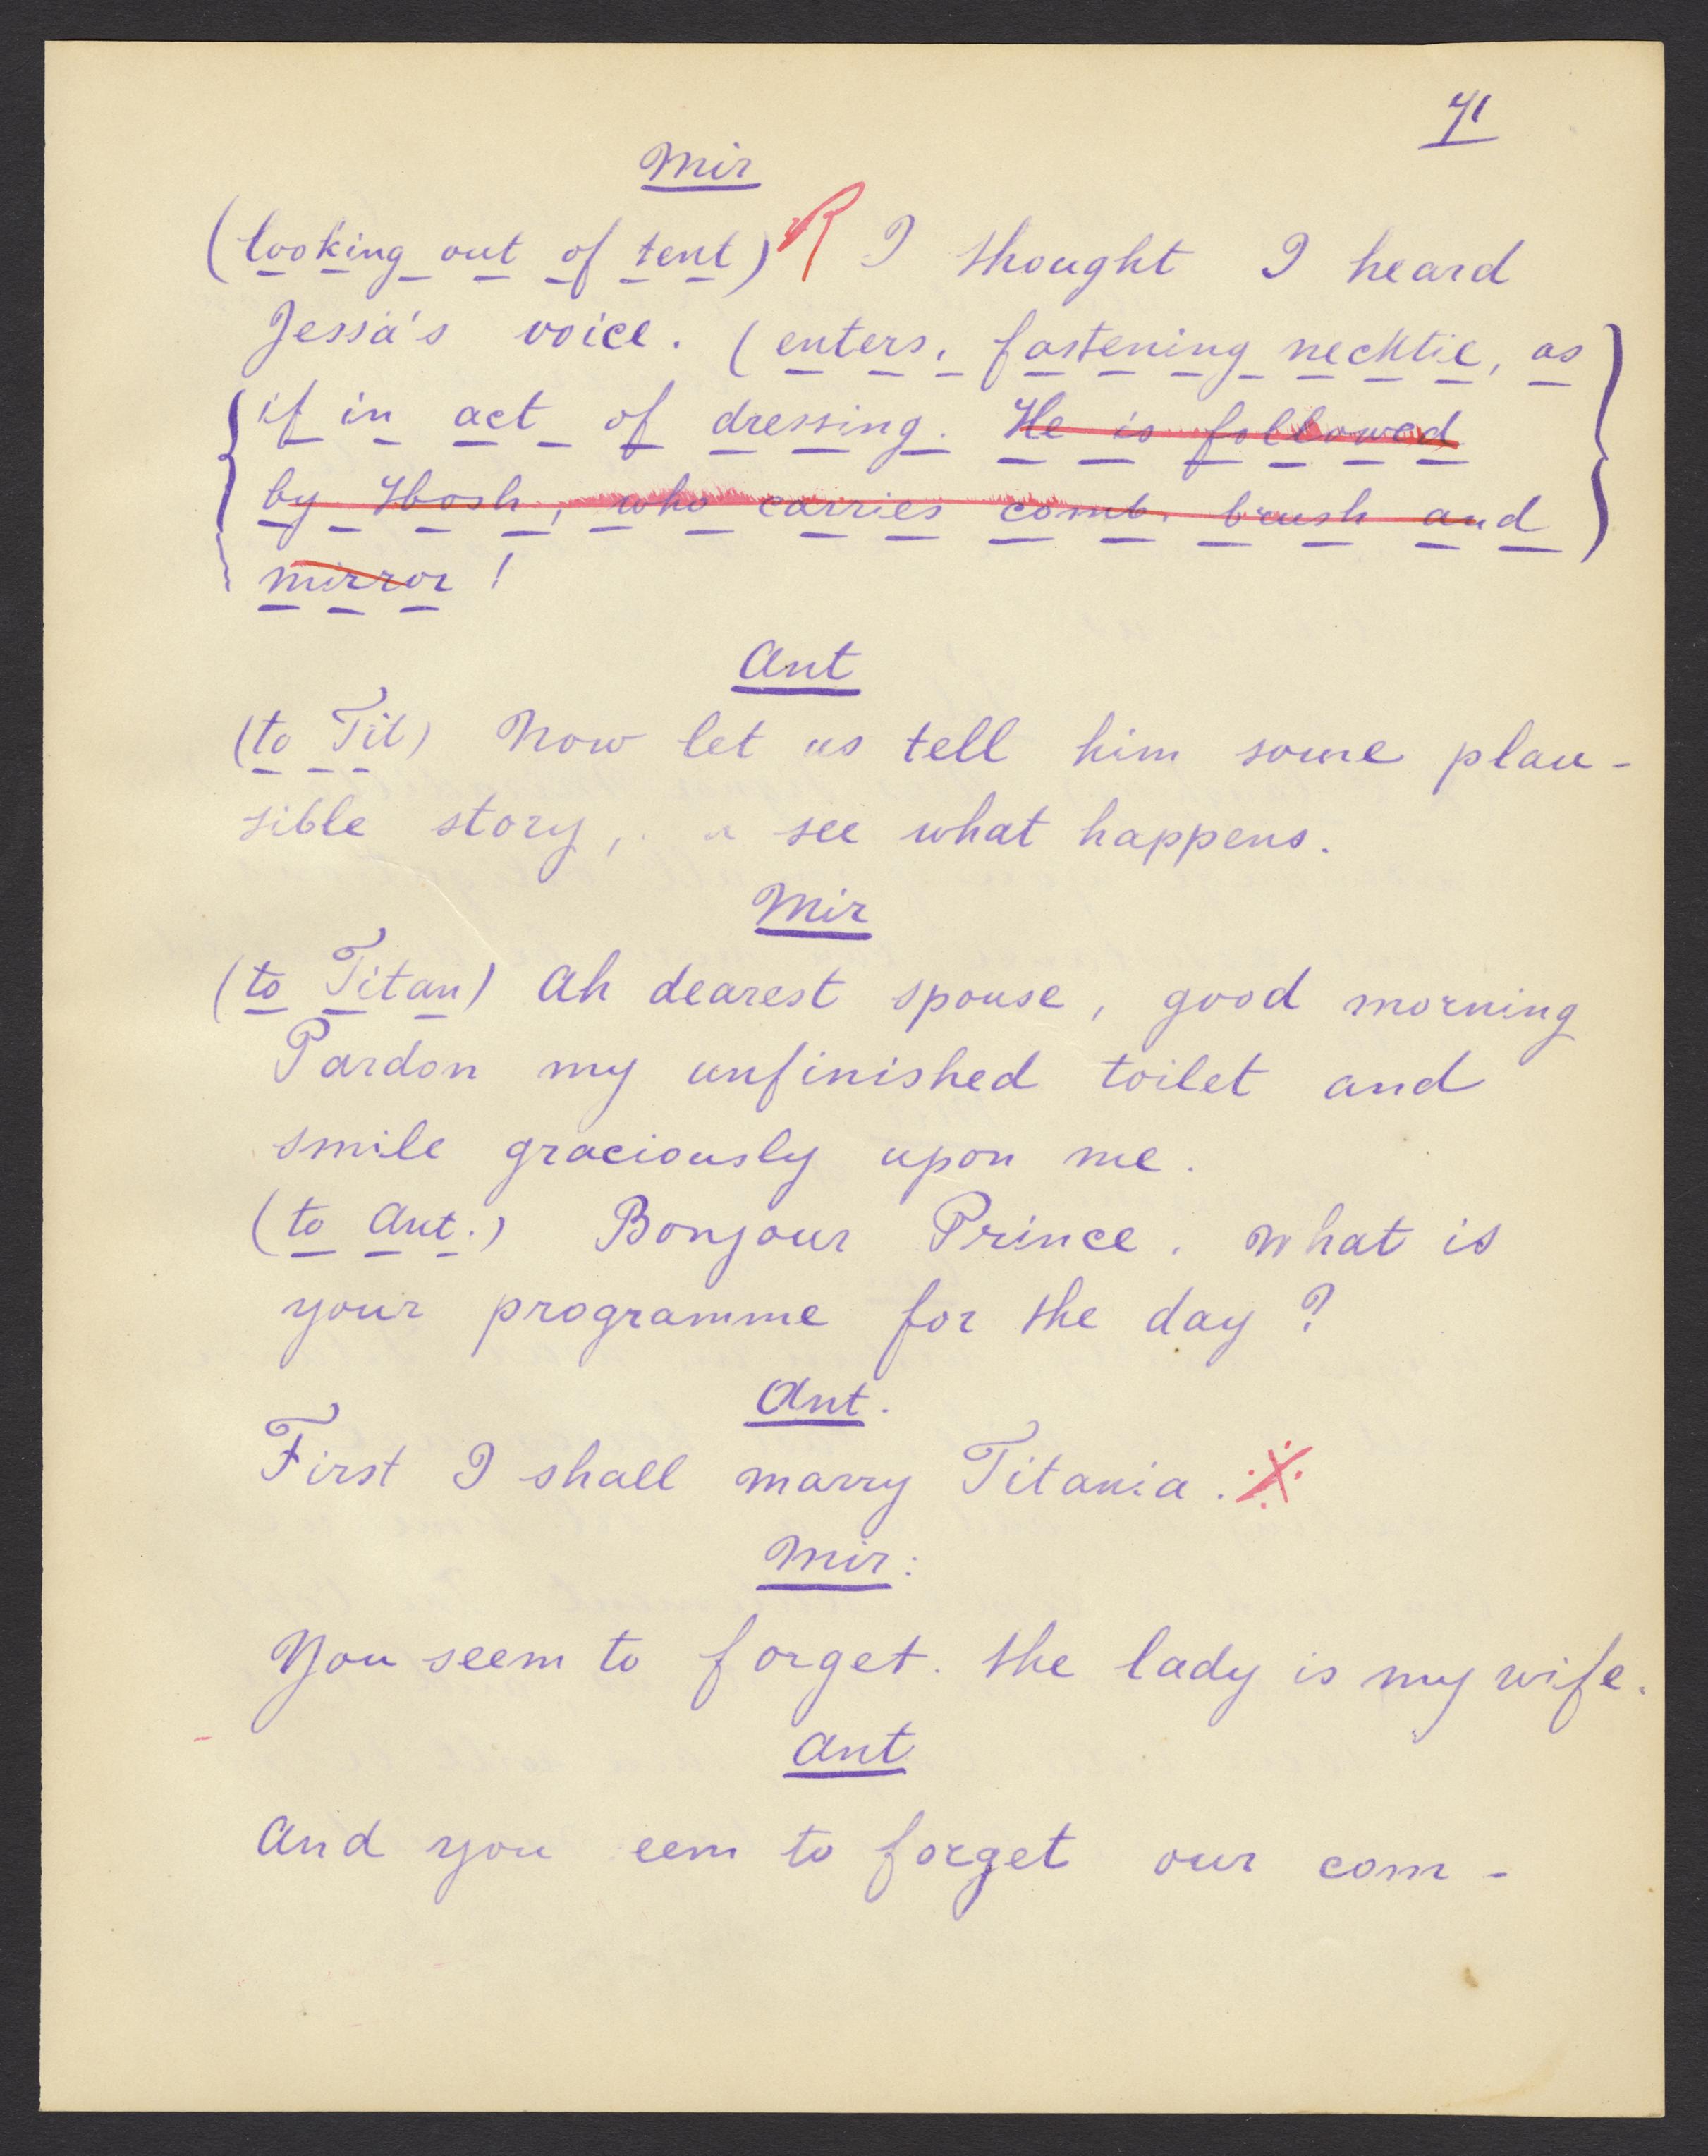 41
Mir
(looking out of tent) R I thought I heard
Jessa's voice. (enters, fastening necktie, as
if in act of dressing. He is followed
by Hbosh, who carries comb, brush and
mirror!
Ant
(to Tit) Now let us tell him some plau-
sible story, see what happens.
Mir
(to Titan) Ah dearest spouse, good morning
Pardon my unfinished toilet and
smile graciously upon me.
(to Ant.) Bonjour Prince. What is
your programme for the day?
Ant.
First I shall marry Titania. ※
Mir:
You seem to forget. the lady is my wife.
Ant
And you eem to forget our com-